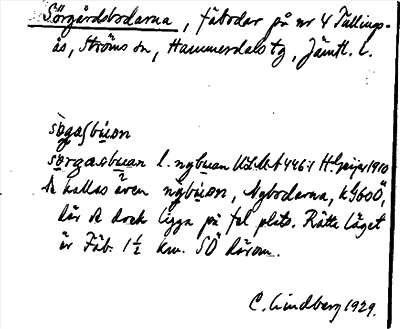 Sörgårdsbodarna, fäbodar på nr 4 Tullings-
ås, Ströms sn, Hammerdals tg, Jämtl. l.
sögasbu̇on
sörgasbuan l. nybuan ULMA 446:1 H. Geijer 1910
De kallas även nybu̇on, Nybodarna, kG60Ö,
där de dock ligga på fel plats. Rätta läget
är Fäb. 1½ km. SÖ därom.
C. Lindberg 1929.